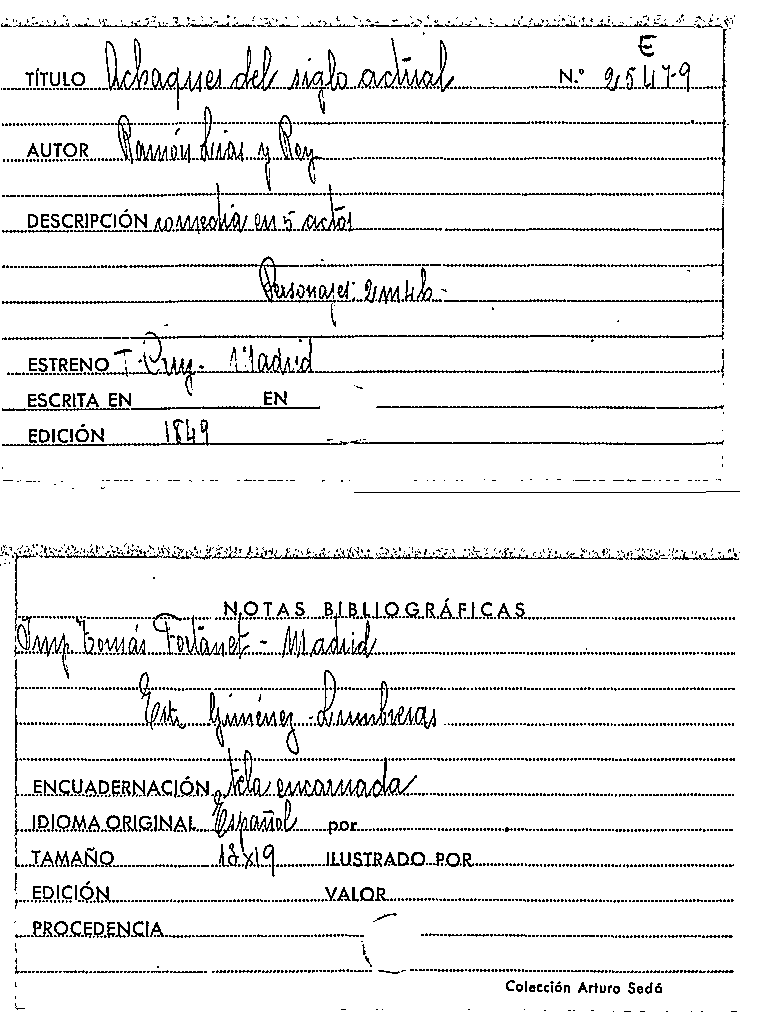 E
TÍTULO Achaques del siglo actual N.º 25479
AUTOR Ramón Lias y Rey
DESCRIPCIÓN comedia en 5 actos
Personajes: 2m4h-
ESTRENO T. Cruz - Madrid
ESCRITA EN EN
EDICIÓN 1849
NOTAS BIBLIOGRÁFICAS
Imp Tomás Fortanet - Madrid
Giménez - Lumbreras
ENCUADERNACIÓN tela encarnada
IDIOMA ORIGINAL Español por
TAMAÑO 13x19 ILUSTRADO POR
EDICIÓN VALOR
PROCEDENCIA
Colección Arturo Sedó